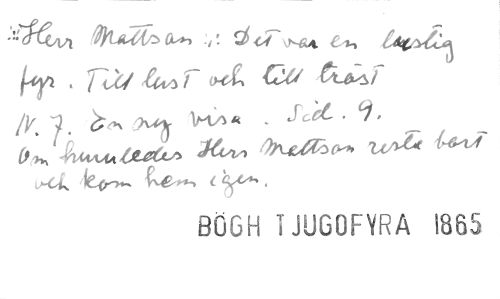 :Herr Mattsan:: Det var en lustig
fyr. Till lust och till tröst
N. 7. En ny visa. Sid. 9.
Om huruledes Herr Mattsan reste bort
och kom hem igen.
BÖGH TJUGOFYRA 1865